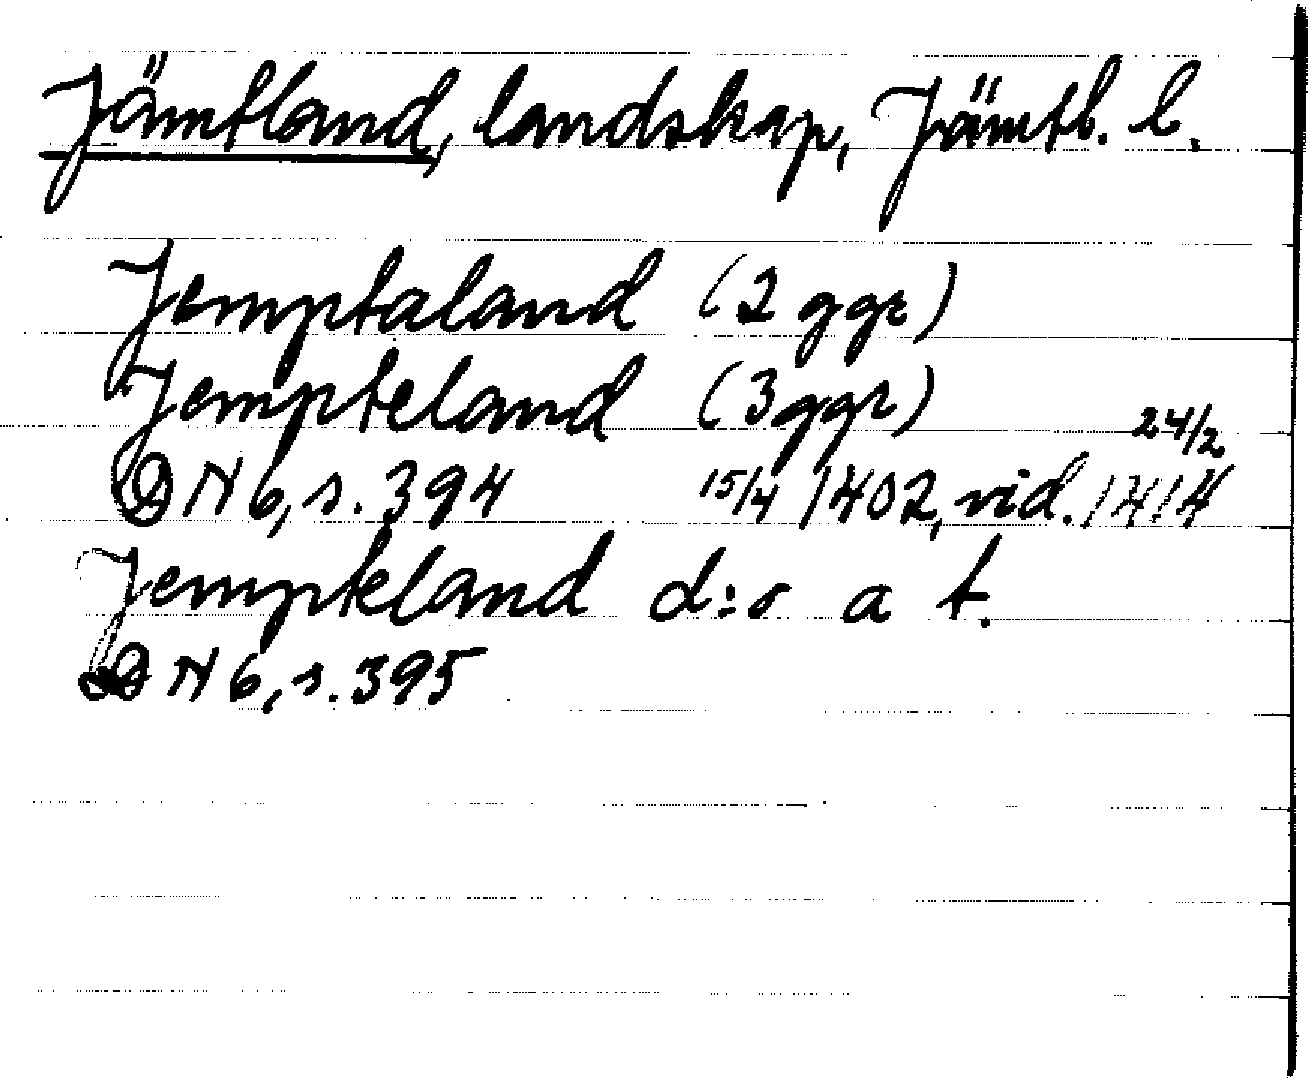 Jämtland, landskap, Jämtl. l.
Jemptaland (2 ggr)
Jempteland (3 ggr)
DN 6, s. 394 15/4 1402, vid. 24/2 1414
Jempteland d:o a t.
DN 6, s. 395